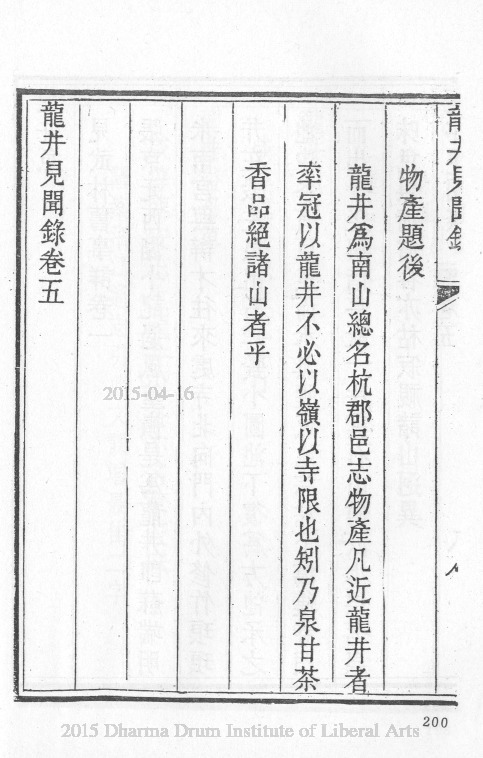 龍井見聞錄
物產題後
龍井爲南山總名杭郡邑志物產凡近龍井者
率冠以龍井不必以嶺以寺限也矧乃泉甘茶
香品絕諸山者乎
龍井見聞錄卷五
2015-04-16
200
2015 Dharma Drum Institute of Liberal Arts